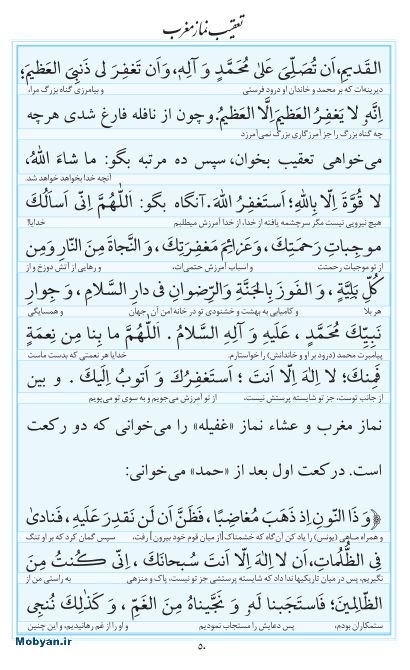 تعقیب نماز مغرب
القَدیمِ، اَن تُصَلِّیَ عَلیٰ مُحَمَّدٍ وَ آلِهِ، وَاَن تَغفِرَ لی ذَنبِیَ العَظیمَ؛
دیرینه‌ات که بر محمد و خاندان او درود فرستی و بیامرزی گناه بزرگ مرا،
اِنَّهُ لا یَغفِرُ العَظیمَ اِلَّا العَظیمُ. وچون از نافله فارغ شدی هرچه
چه گناه بزرگ را جز آمرزگاری بزرگ نمی‌آمرزد
می‌خواهی تعقیب بخوان، سپس ده مرتبه بگو: ما شاءَ اللهُ،
آنچه خدا بخواهد خواهد شد.
لا قُوَّةَ اِلّا بِاللهِ؛ اَستَغفِرُ اللهَ. آنگاه بگو: اَللّٰهُمَّ اِنّی اَساَلُكَ
هیچ نیرویی نیست مگر سرچشمه یافته از خدا، از خدا آمرزش میطلبم خدایا!
موجِباتِ رَحمَتِكَ، وَعَزائِمَ مَغفِرَتِكَ، وَ النَّجاةَ مِنَ النّارِ وَمِن
از تو موجبات رحمتت و اسباب آمرزش حتمی‌ات، و رهایی از آتش دوزخ و از
كُلِّ بَلِیَّةٍ، وَ الفَوزَ بِالجَنَّةِ وَالرِّضوانِ فی دارِ السَّلامِ، وَ جِوارِ
هر بلا و کامیابی به بهشت و خشنودی تو در خانه امن آن جهان و همسایگی
نَبِیِّكَ مُحَمَّدٍ، عَلَیهِ وَ آلِهِ السَّلامُ. اَللّٰهُمَّ ما بِنا مِن نِعمَةٍ
پیامبرت محمد (درود بر او و خاندانش) را خواستارم. خدایا هر نعمتی که بدست ماست
فَمِنكَ؛ لا اِلٰهَ اِلّا اَنتَ؛ اَستَغفِرُكَ وَ اَتوبُ اِلَیكَ. و بین
از جانب توست، جز تو شایسته پرستش نیست، از تو آمرزش می‌جویم و به سوی تو می‌پویم
نماز مغرب و عشاء نماز «غفیله» را می‌خوانی که دو رکعت
است. درکعت اول بعد از «حمد» می‌خوانی:
﴿وَ ذَا النّونِ اِذ ذَهَبَ مُغاضِبًا، فَظَنَّ اَن لَن نَقدِرَ عَلَیهِ، فَنادیٰ
و همراه ماهی (یونس) را یاد کن آن گاه که خشمناک [از میان قوم خود بیرون] رفت، سپس گمان کرد که بر او تنگ
فِی الظُّلُماتِ، اَن لا اِلٰهَ اِلّا اَنتَ سُبحانَكَ، اِنّی كُنتُ مِنَ
نگیریم، پس در میان تاریکیها ندا داد که شایسته پرستشی جز تو نیست، پاک و منزهی به راستی من از
الظّالِمینَ؛ فَاستَجَبنا لَهُ وَ نَجَّیناهُ مِنَ الغَمِّ، وَ كَذٰلِكَ نُنجِی
ستمکاران بودم، پس دعایش را مستجاب نمودیم و او را از غم رهانیدیم، و این چنین
۵۰
Mobyan.ir